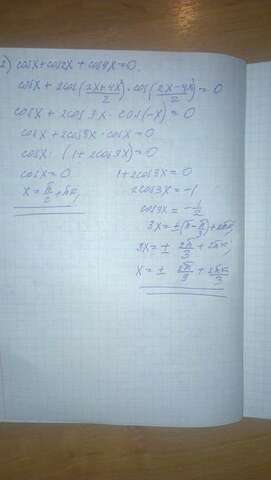 2) cosx + cos2x + cos4x = 0
cosx + 2cos(2x+4x/2) · cos(2x-4x/2) = 0
cosx + 2cos3x · cos(-x) = 0
cosx + 2cos3x · cosx = 0
cosx · (1 + 2cos3x) = 0
cosx = 0 1 + 2cos3x = 0
x = π/2 + πk, 2cos3x = -1
cos3x = -1/2
3x = ±(π - π/3) + 2πk,
3x = ± 2π/3 + 2πk,
x = ± 2π/9 + 2πk/3